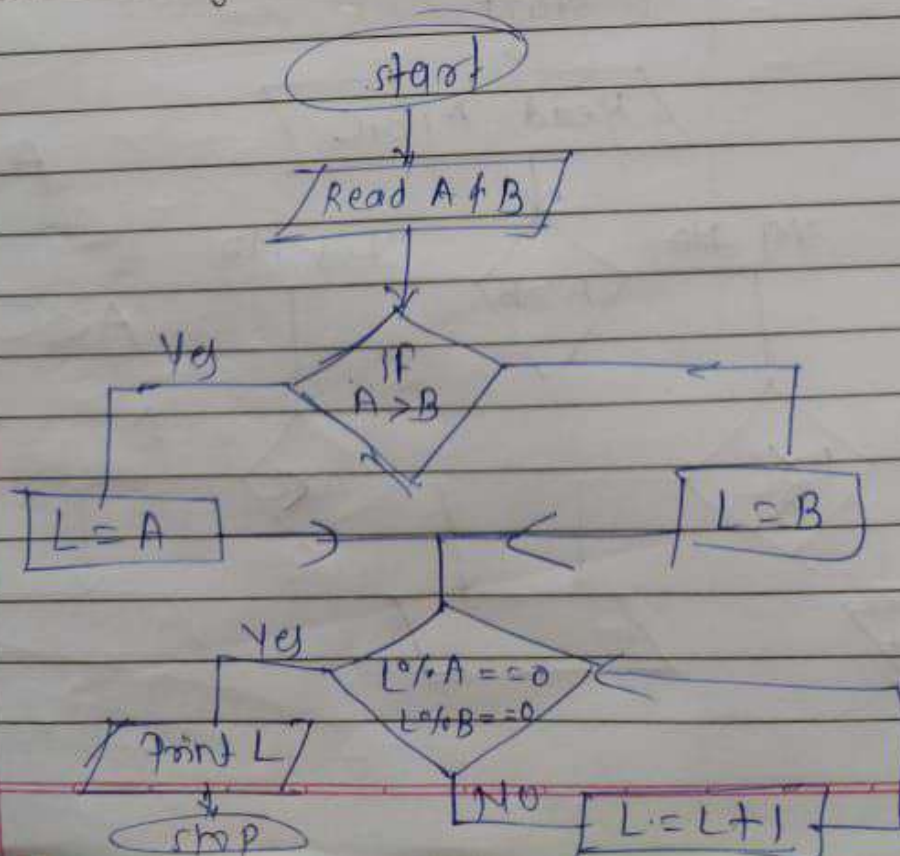 start
Read A & B
Yes
If
A > B
L = A
L = B
Yes
L % A == 0
L % B == 0
Print L
No
L = L + 1
stop